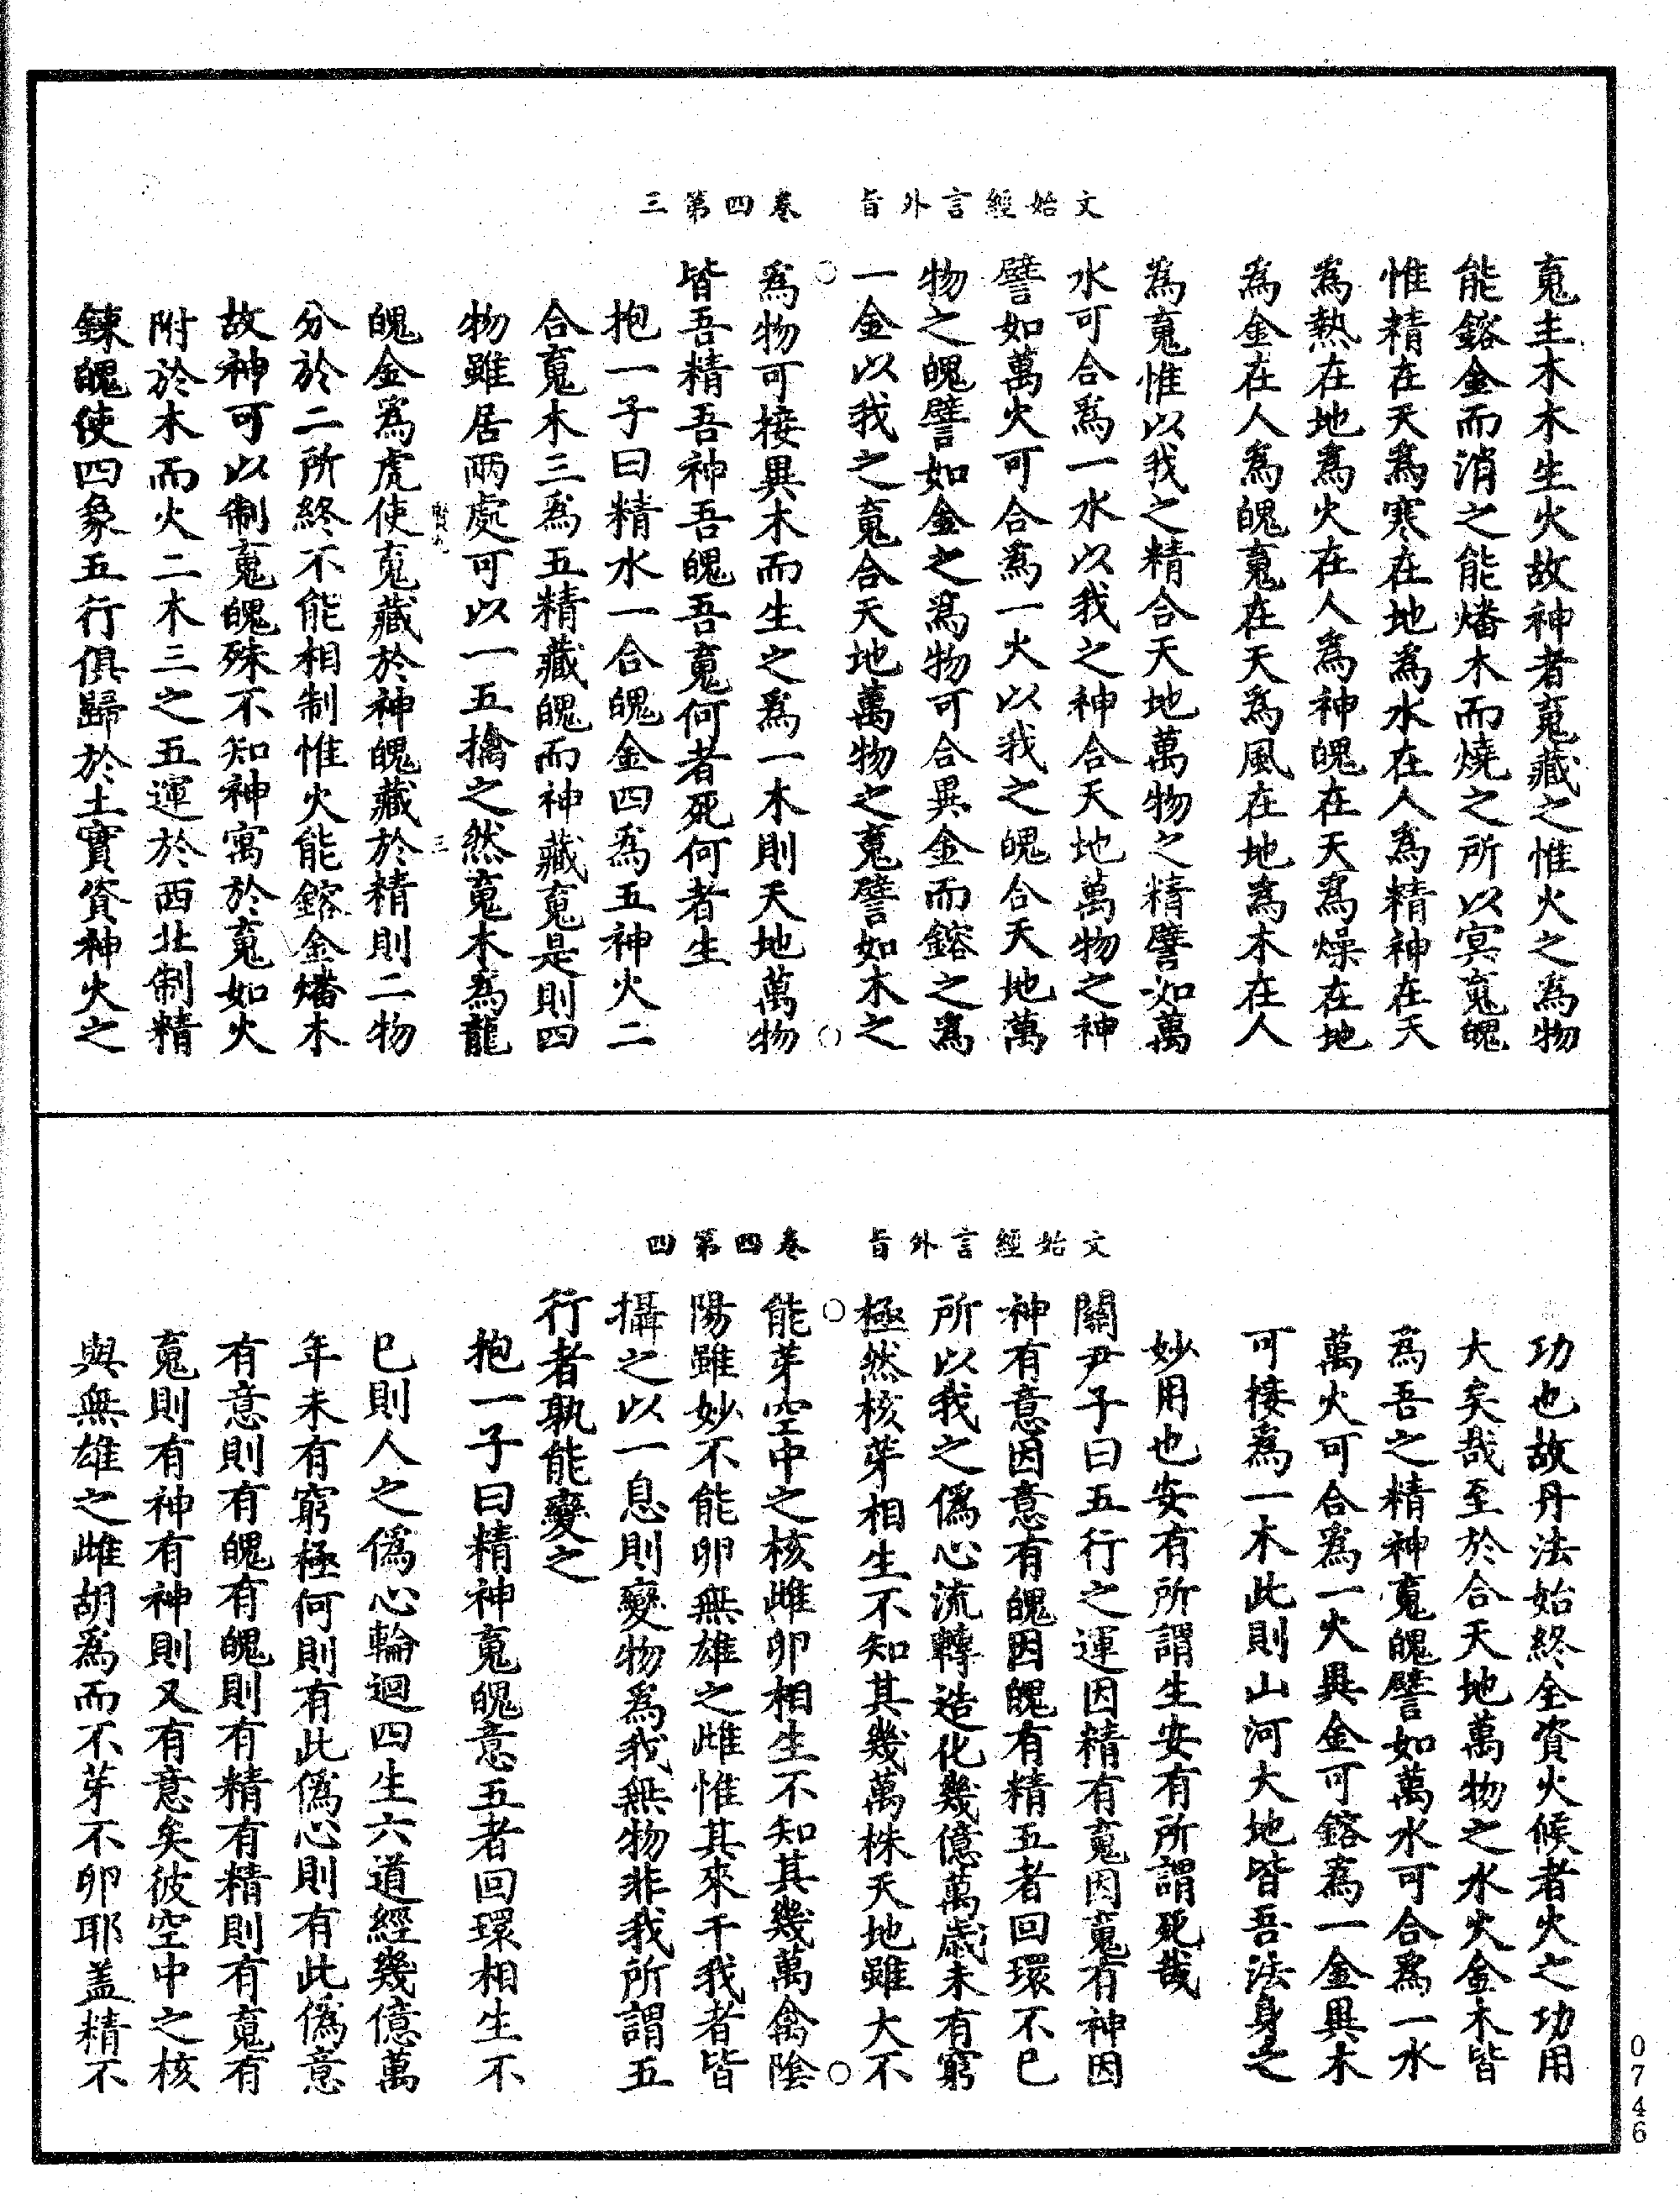 文始經言外旨　卷四第三
䰟主木木生火故神者䰟藏之惟火之爲物
能鎔金而消之能燔木而燒之所以㝠䰟魄
惟精在天爲寒在地爲水在人爲精神在天
爲熱在地爲火在人爲神魄在天爲燥在地
爲金在人爲魄䰟在天爲風在地爲木在人
爲䰟惟以我之精合天地萬物之精譬如萬
水可合爲一水以我之神合天地萬物之神
譬如萬火可合爲一火以我之魄合天地萬
物之魄譬如金之爲物可合異金而鎔之爲
一金以我之䰟合天地萬物之䰟譬如木之
爲物可接異木而生之爲一木則天地萬物
皆吾精吾神吾魄吾䰟何者死何者生
抱一子曰精水一合魄金四爲五神火二
合䰟木三爲五精藏魄而神藏䰟是則四
物雖居兩處可以一五擒之然䰟木爲龍
魄金爲虎使䰟藏於神魄藏於精則二物
分於二所終不能相制惟火能鎔金燔木
故神可以制䰟魄殊不知神寓於䰟如火
附於木而火二木三之五運於西北制精
鍊魄使四象五行俱歸於土實資神火之
文始經言外旨　卷四第四
功也故丹法始終全資火候者火之功用
大矣哉至於合天地萬物之水火金木皆
爲吾之精神䰟魄譬如萬水可合爲一水
萬火可合爲一火異金可鎔爲一金異木
可接爲一木此則山河大地皆吾法身之
妙用也安有所謂生安有所謂死哉
關尹子曰五行之運因精有䰟因䰟有神因
神有意因意有魄因魄有精五者回環不已
所以我之僞心流轉造化幾億萬歲未有窮
極然核芽相生不知其幾萬株天地雖大不
能芽空中之核雌卵相生不知其幾萬禽陰
陽雖妙不能卵無雄之雌惟其來干我者皆
攝之以一息則變物爲我無物非我所謂五
行者孰能變之
抱一子曰精神䰟魄意五者回環相生不
已則人之僞心輪迴四生六道經幾億萬
年未有窮極何則有此僞心則有此僞意
有意則有魄有魄則有精有精則有䰟有
䰟則有神有神則又有意矣彼空中之核
與無雄之雌胡爲而不芽不卵耶盖精不
0746